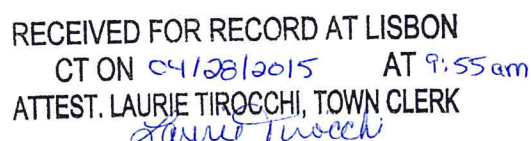 RECEIVED FOR RECORD AT LISBON
CT ON 04/28/2015 AT 9:55am
ATTEST. LAURIE TIROCCHI, TOWN CLERK
Laurie Tirocchi